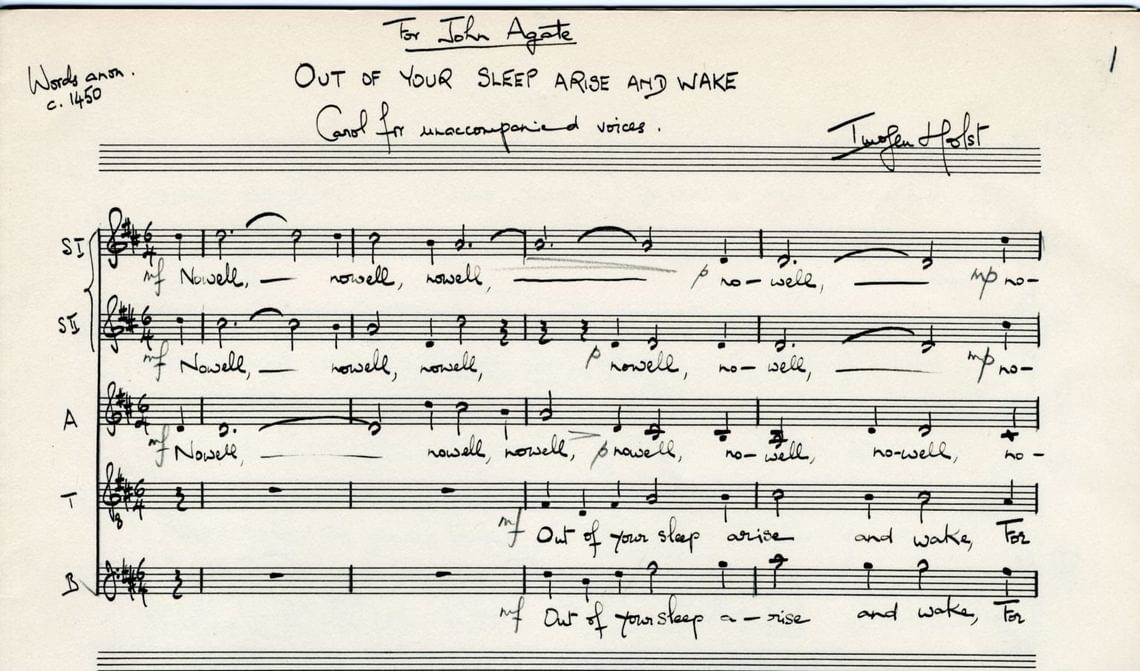 For John Agate
1
Words anon.
c. 1450
OUT OF YOUR SLEEP ARISE AND WAKE
Carol for unaccompanied voices.
Imogen Holst
SI
mf Nowell, — nowell, nowell, — p no-well, — mp no-
SII
mf Nowell, — nowell, nowell, p nowell, no-well, — mp no-
A
mf Nowell, — nowell, nowell, p nowell, no-well, no-well, no-
T
mf Out of your sleep arise and wake, For
B
mf Out of your sleep a-rise and wake, For